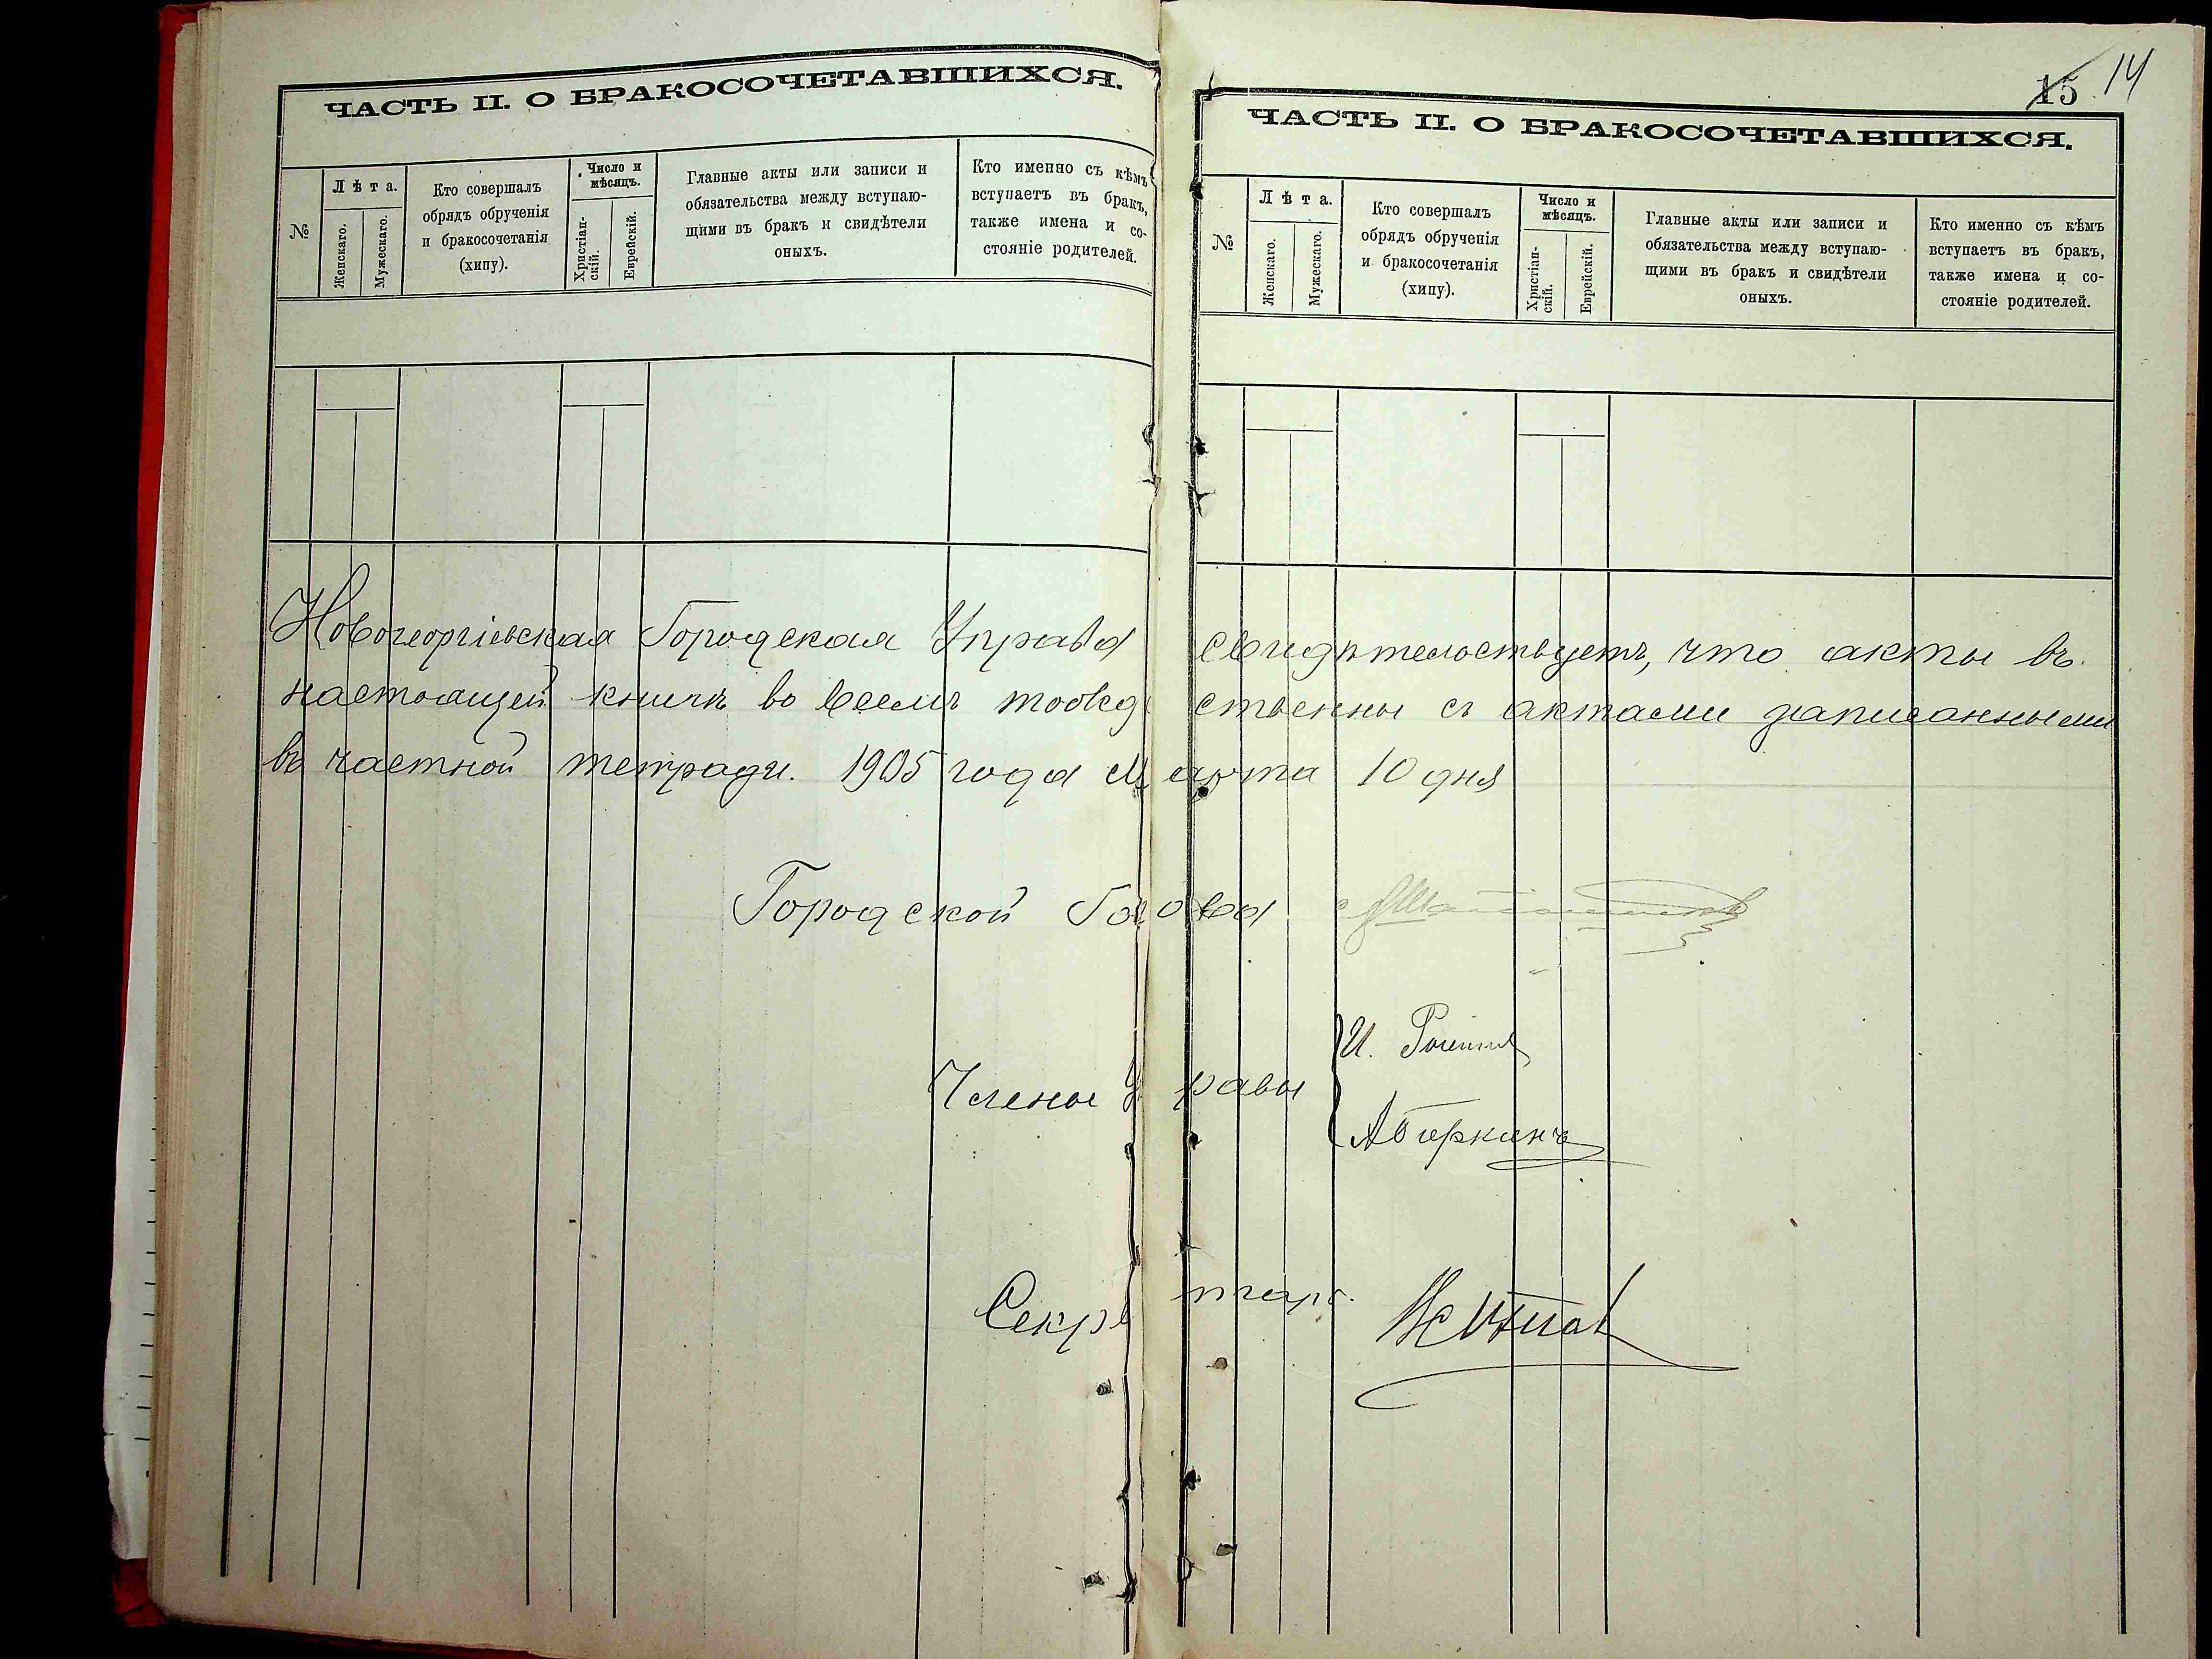 ЧАСТЬ II. О БРАКОСОЧЕТАВШИХСЯ.
№
Лѣта.
Женскаго.
Мужескаго.
Кто совершалъ
обрядъ обрученія
и бракосочетанія
(хипу).
Число и
мѣсяцъ.
Христіан-
скій.
Еврейскій.
Главные акты или записи и
обязательства между вступаю-
щими въ бракъ и свидѣтели
оныхъ.
Кто именно съ кѣмъ
вступаетъ въ бракъ,
также имена и со-
стояніе родителей.
15 14
ЧАСТЬ II. О БРАКОСОЧЕТАВШИХСЯ.
№
Лѣта.
Женскаго.
Мужескаго.
Кто совершалъ
обрядъ обрученія
и бракосочетанія
(хипу).
Число и
мѣсяцъ.
Христіан-
скій.
Еврейскій.
Главные акты или записи и
обязательства между вступаю-
щими въ бракъ и свидѣтели
оныхъ.
Кто именно съ кѣмъ
вступаетъ въ бракъ,
также имена и со-
стояніе родителей.
Новогеоргіевская Городская Управа свидѣтельствуетъ, что акты въ
настоящей книгѣ во всемъ тождественны съ актами записанными
въ частной тетради. 1905 года Марта 10 дня
Городской Голова
Члены Управы
И.
А Биркинъ
Секретарь.